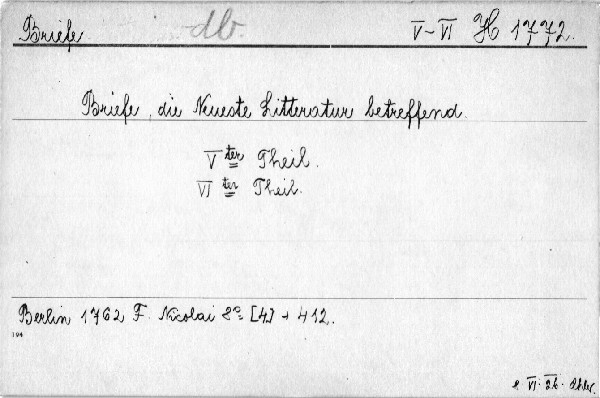 Briefe. db. V-VI H 1772.
Briefe, die Neueste Litteratur betreffend.
V ter Theil.
VI ter Theil.
Berlin 1762 F. Nicolai 8° [4] + 412.
104
VI. 26.